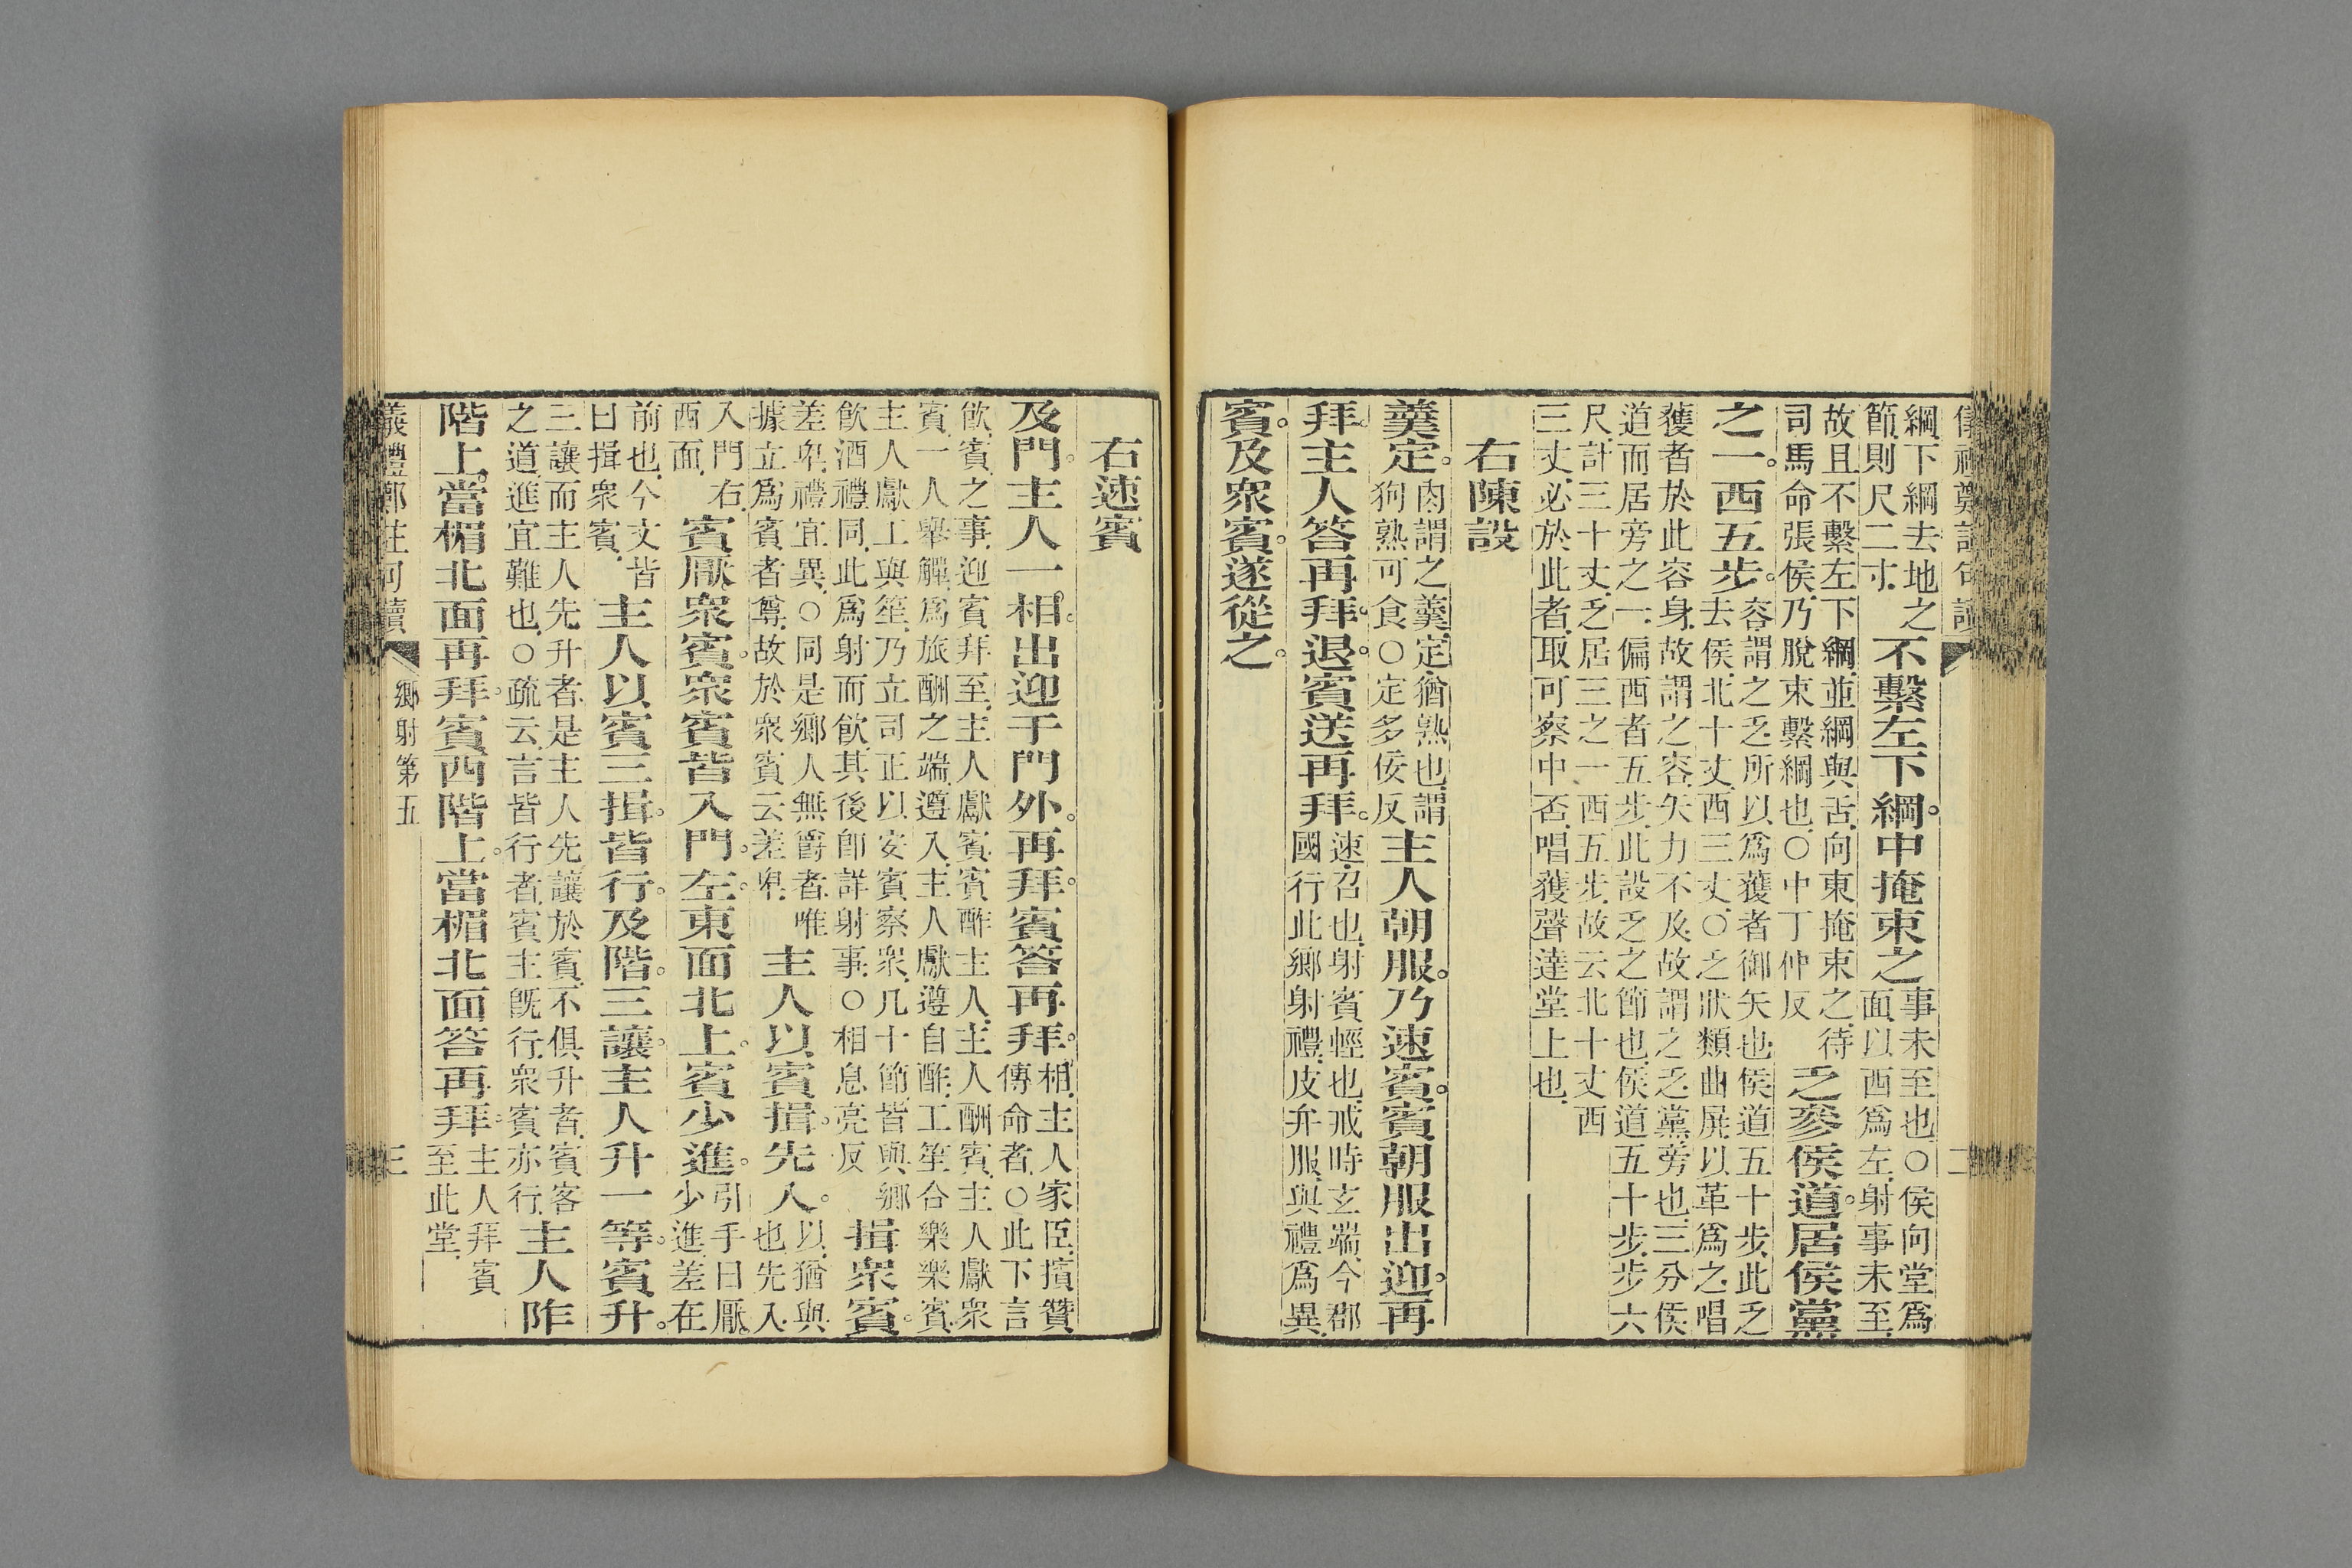 綱下綱去地之
節則尺二寸
不繫左下綱。中掩束之
事未至也○侯向堂爲
面以西爲左射事未至
故且不繫左下綱並綱與舌向東掩束之待
司馬命張侯乃脫束繫綱也○中丁仲反
乏參侯道。居侯黨
之一。西五步。
容謂之乏所以爲獲者御矢也侯道五十步此乏
去侯北十丈西三丈○乏狀類曲屏以革爲之唱
獲者於此容身故謂之容矢力不及故謂之乏黨旁也三分侯
道而居旁之一偏西者五步此設乏之節也侯道五十步步六
尺計三十丈乏居三之一西五步故云北十丈西
三丈必於此者取可察中否唱獲聲達堂上也
右陳設
羹定。
肉謂之羹定猶熟也謂
狗熟可食○定多佞反
主人朝服。乃速賓。賓朝服出迎。再
拜。主人答再拜。退。賓送再拜。
速召也射賓輕也戒時玄端今郡
國行此鄉射禮皮弁服與禮爲異
賓。及衆賓。遂從之。
右速賓
及門。主人一相。出迎于門外。再拜。賓答再拜。
相主人家臣擯贊
傳命者○此下言
飲賓之事迎賓拜至主人獻賓賓酢主人主人酬賓主人獻衆
賓一人舉觶爲旅酬之端遵入主人獻遵自酢工笙合樂樂賓
主人獻工與笙乃立司正以安賓察衆凡十節皆與鄉
飲酒禮同此爲射而飲其後卽詳射事○相息亮反
揖衆賓。
差卑禮宜異○同是鄉人無爵者唯
據立爲賓者尊故於衆賓云差卑
主人以賓揖。先入。
以猶與
也先入
入門右
西面
賓厭衆賓。衆賓皆入門。左。東面北上。賓少進。
引手曰厭
少進差在
前也今文皆
曰揖衆賓
主人以賓三揖。皆行。及階。三讓。主人升一等。賓升。
三讓而主人先升者是主人先讓於賓不俱升者賓客
之道進宜難也○疏云言皆行者賓主旣行衆賓亦行
主人阼
階上。當楣北面再拜。賓西階上。當楣北面答再拜。
主人拜賓
至此堂
鄉射第五
三